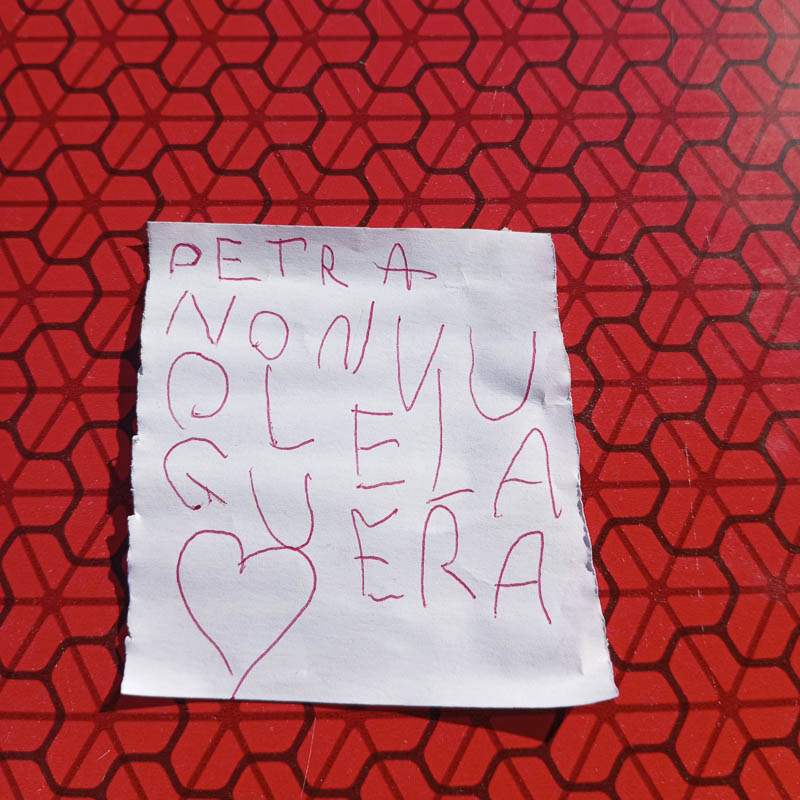 PETRA
NON VU
OLE LA
GUERA